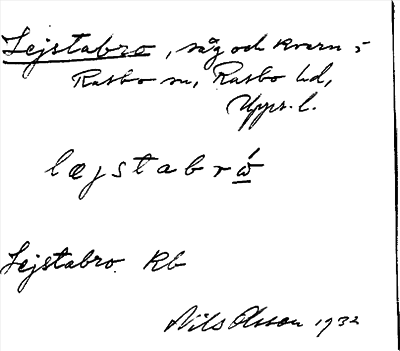 Lejstabro, såg och kvarn i
Rasbo sn, Rasbo hd,
Upps. l.
læjstabrẃ
Lejstabro Rb
Nils Olsson 1932